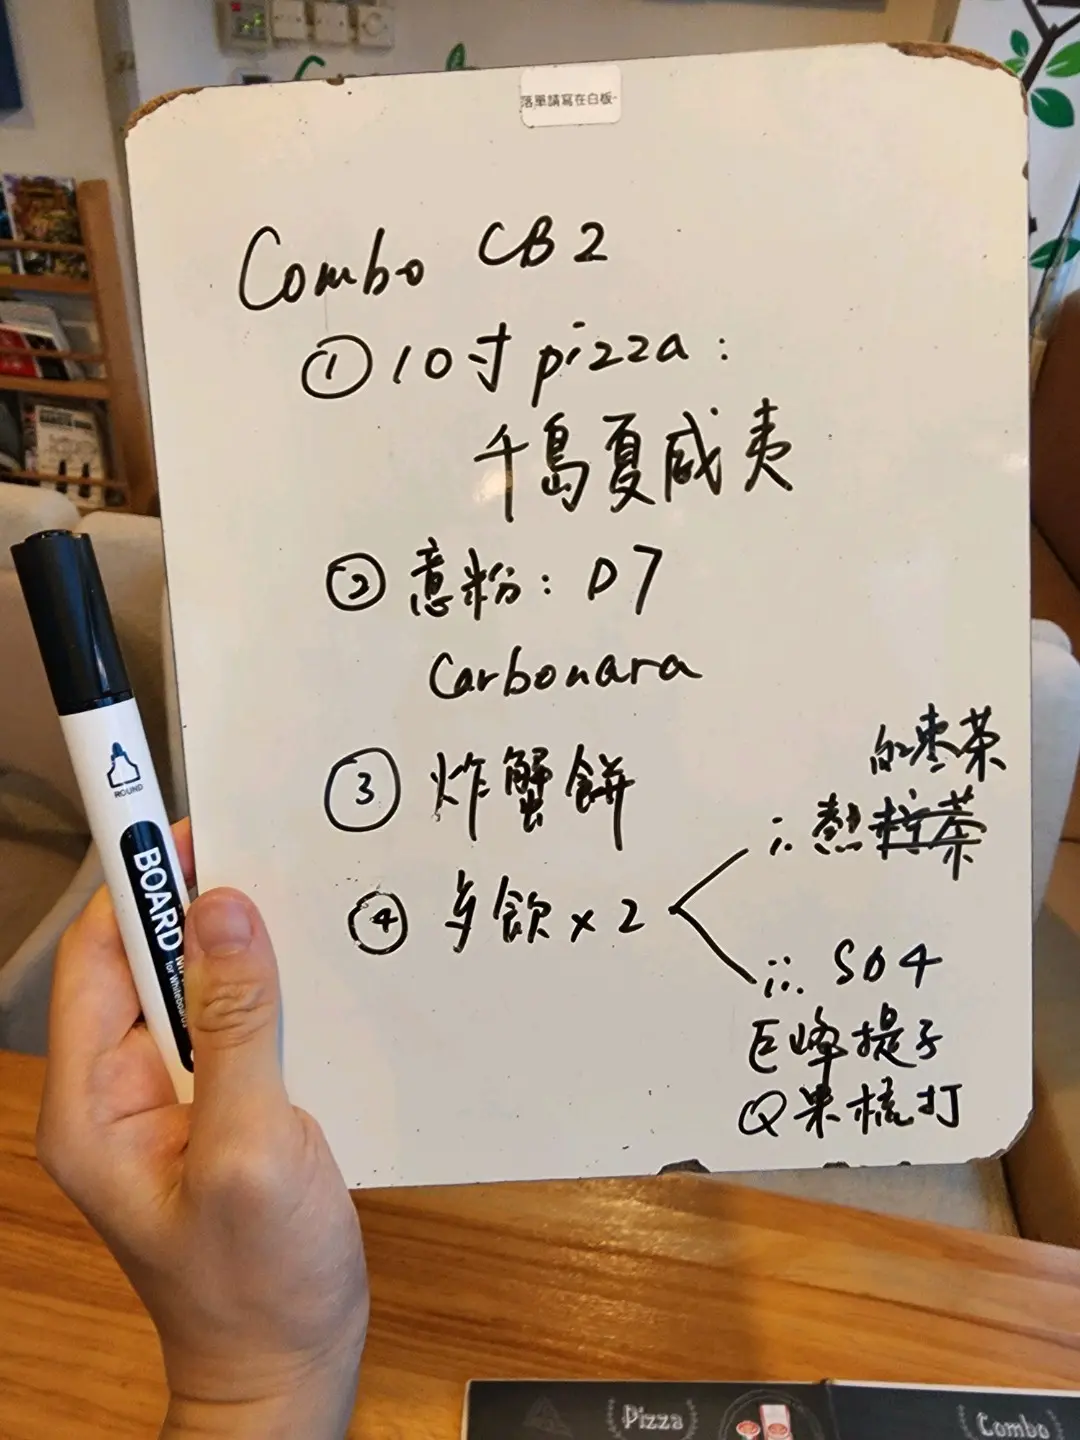 落單請寫在白板
Combo CB2
① 10寸 pizza:
千島夏威夷
② 意粉: D7
Carbonara
③ 炸蟹餅
④ 多飲 x 2
红枣茶
i. 熱
ii. S04
巨峰提子
Q果梳打
ROUND
BOARD
for Whiteboards
Pizza
Combo